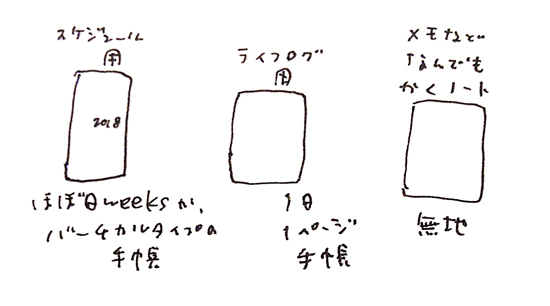 スケジュール
用
2018
ほぼ日weeksか、
バーチカルタイプの
手帳
ライフログ
用
1日
1ページ
手帳
メモなど
なんでも
かくノート
無地